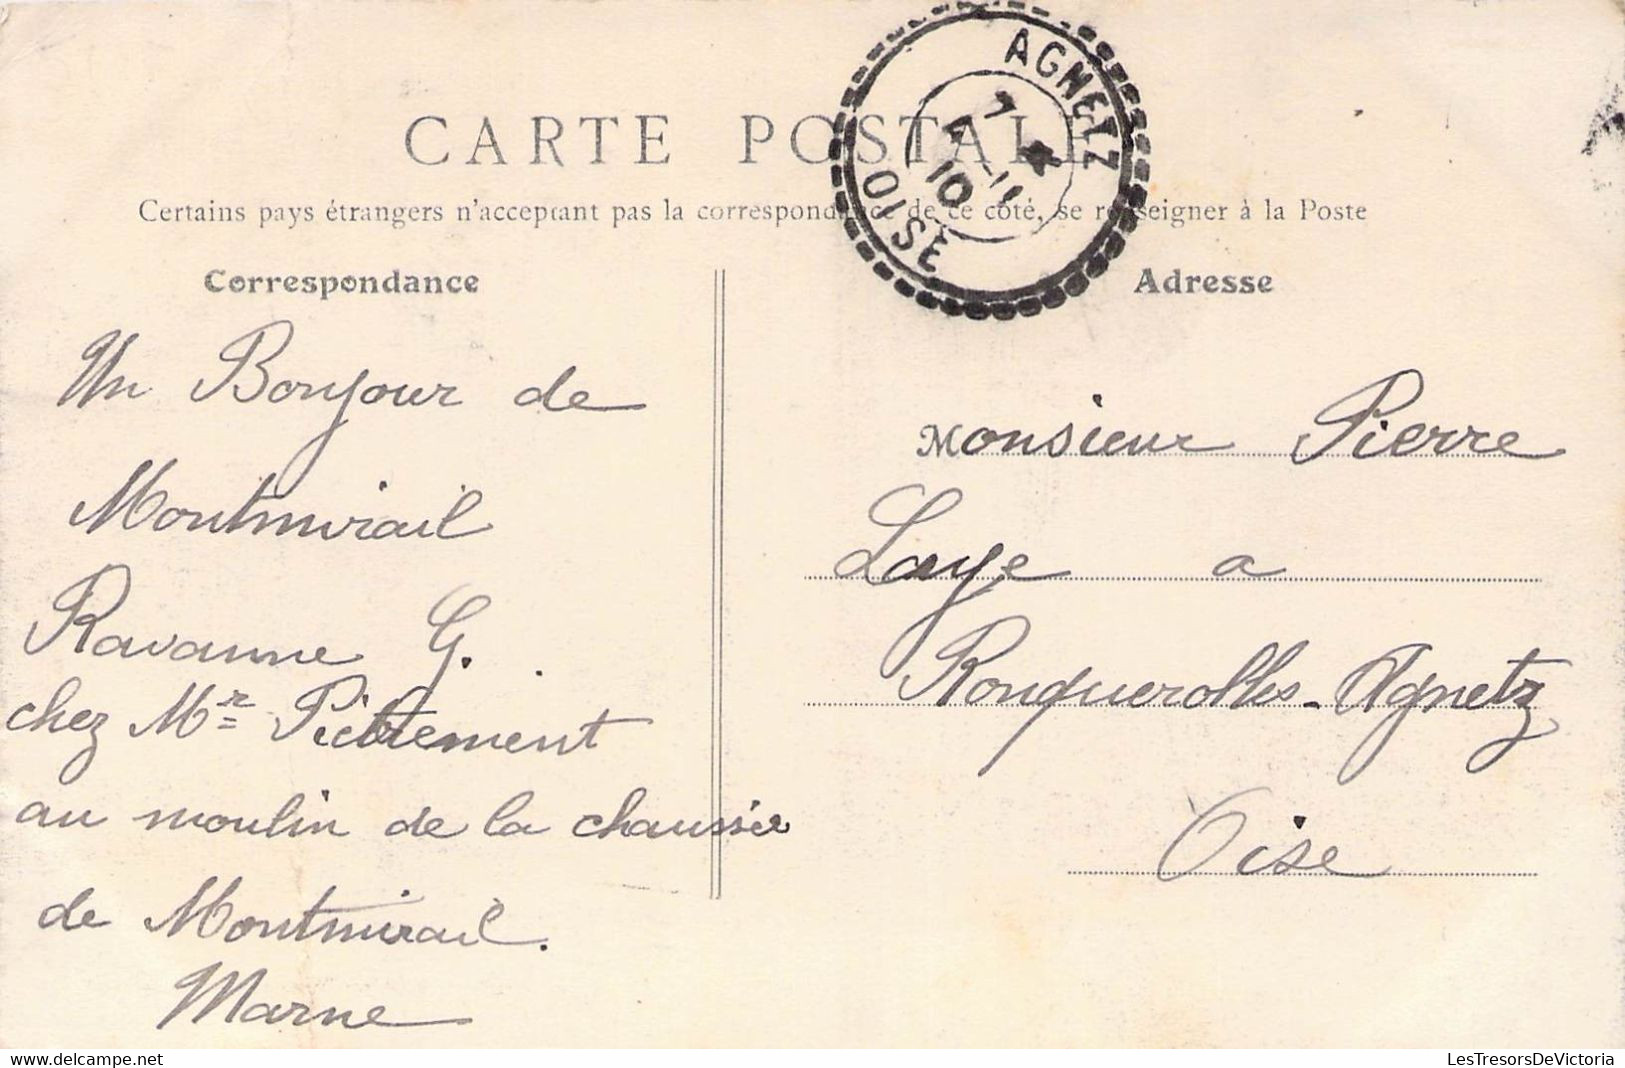 CARTE POSTALE
Certains pays étrangers n'acceptant pas la correspondance de ce côté, se renseigner à la Poste
AGNETZ
7
10
OISE
Correspondance
Un Bonjour de
Montmirail
Ravanne G.
chez Mr Piétrement
au moulin de la chaussée
de Montmirail.
Marne
Adresse
Monsieur Pierre
Laye a
Ronquerolles - Agnetz
Oise
www.delcampe.net
LesTresorsDeVictoria